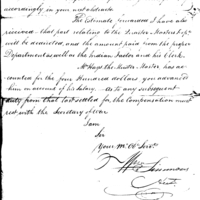 accordingly in your next abstracts.
The Estimate forwarded I have also
received. that part relating to the Factor
will be deducted, and the amount paid from the proper
Department as well as the Indian Factor and his Clerk.
the Muster Master, has ac-
counted for the four Hundred dollars you advanced
him on account of his Salary. As to any subsequent
duty from that last settled for the compensation must
rest with the Secretary of War
I am
Sir
Your Mo. Ob. Servt.
Wm Simmons